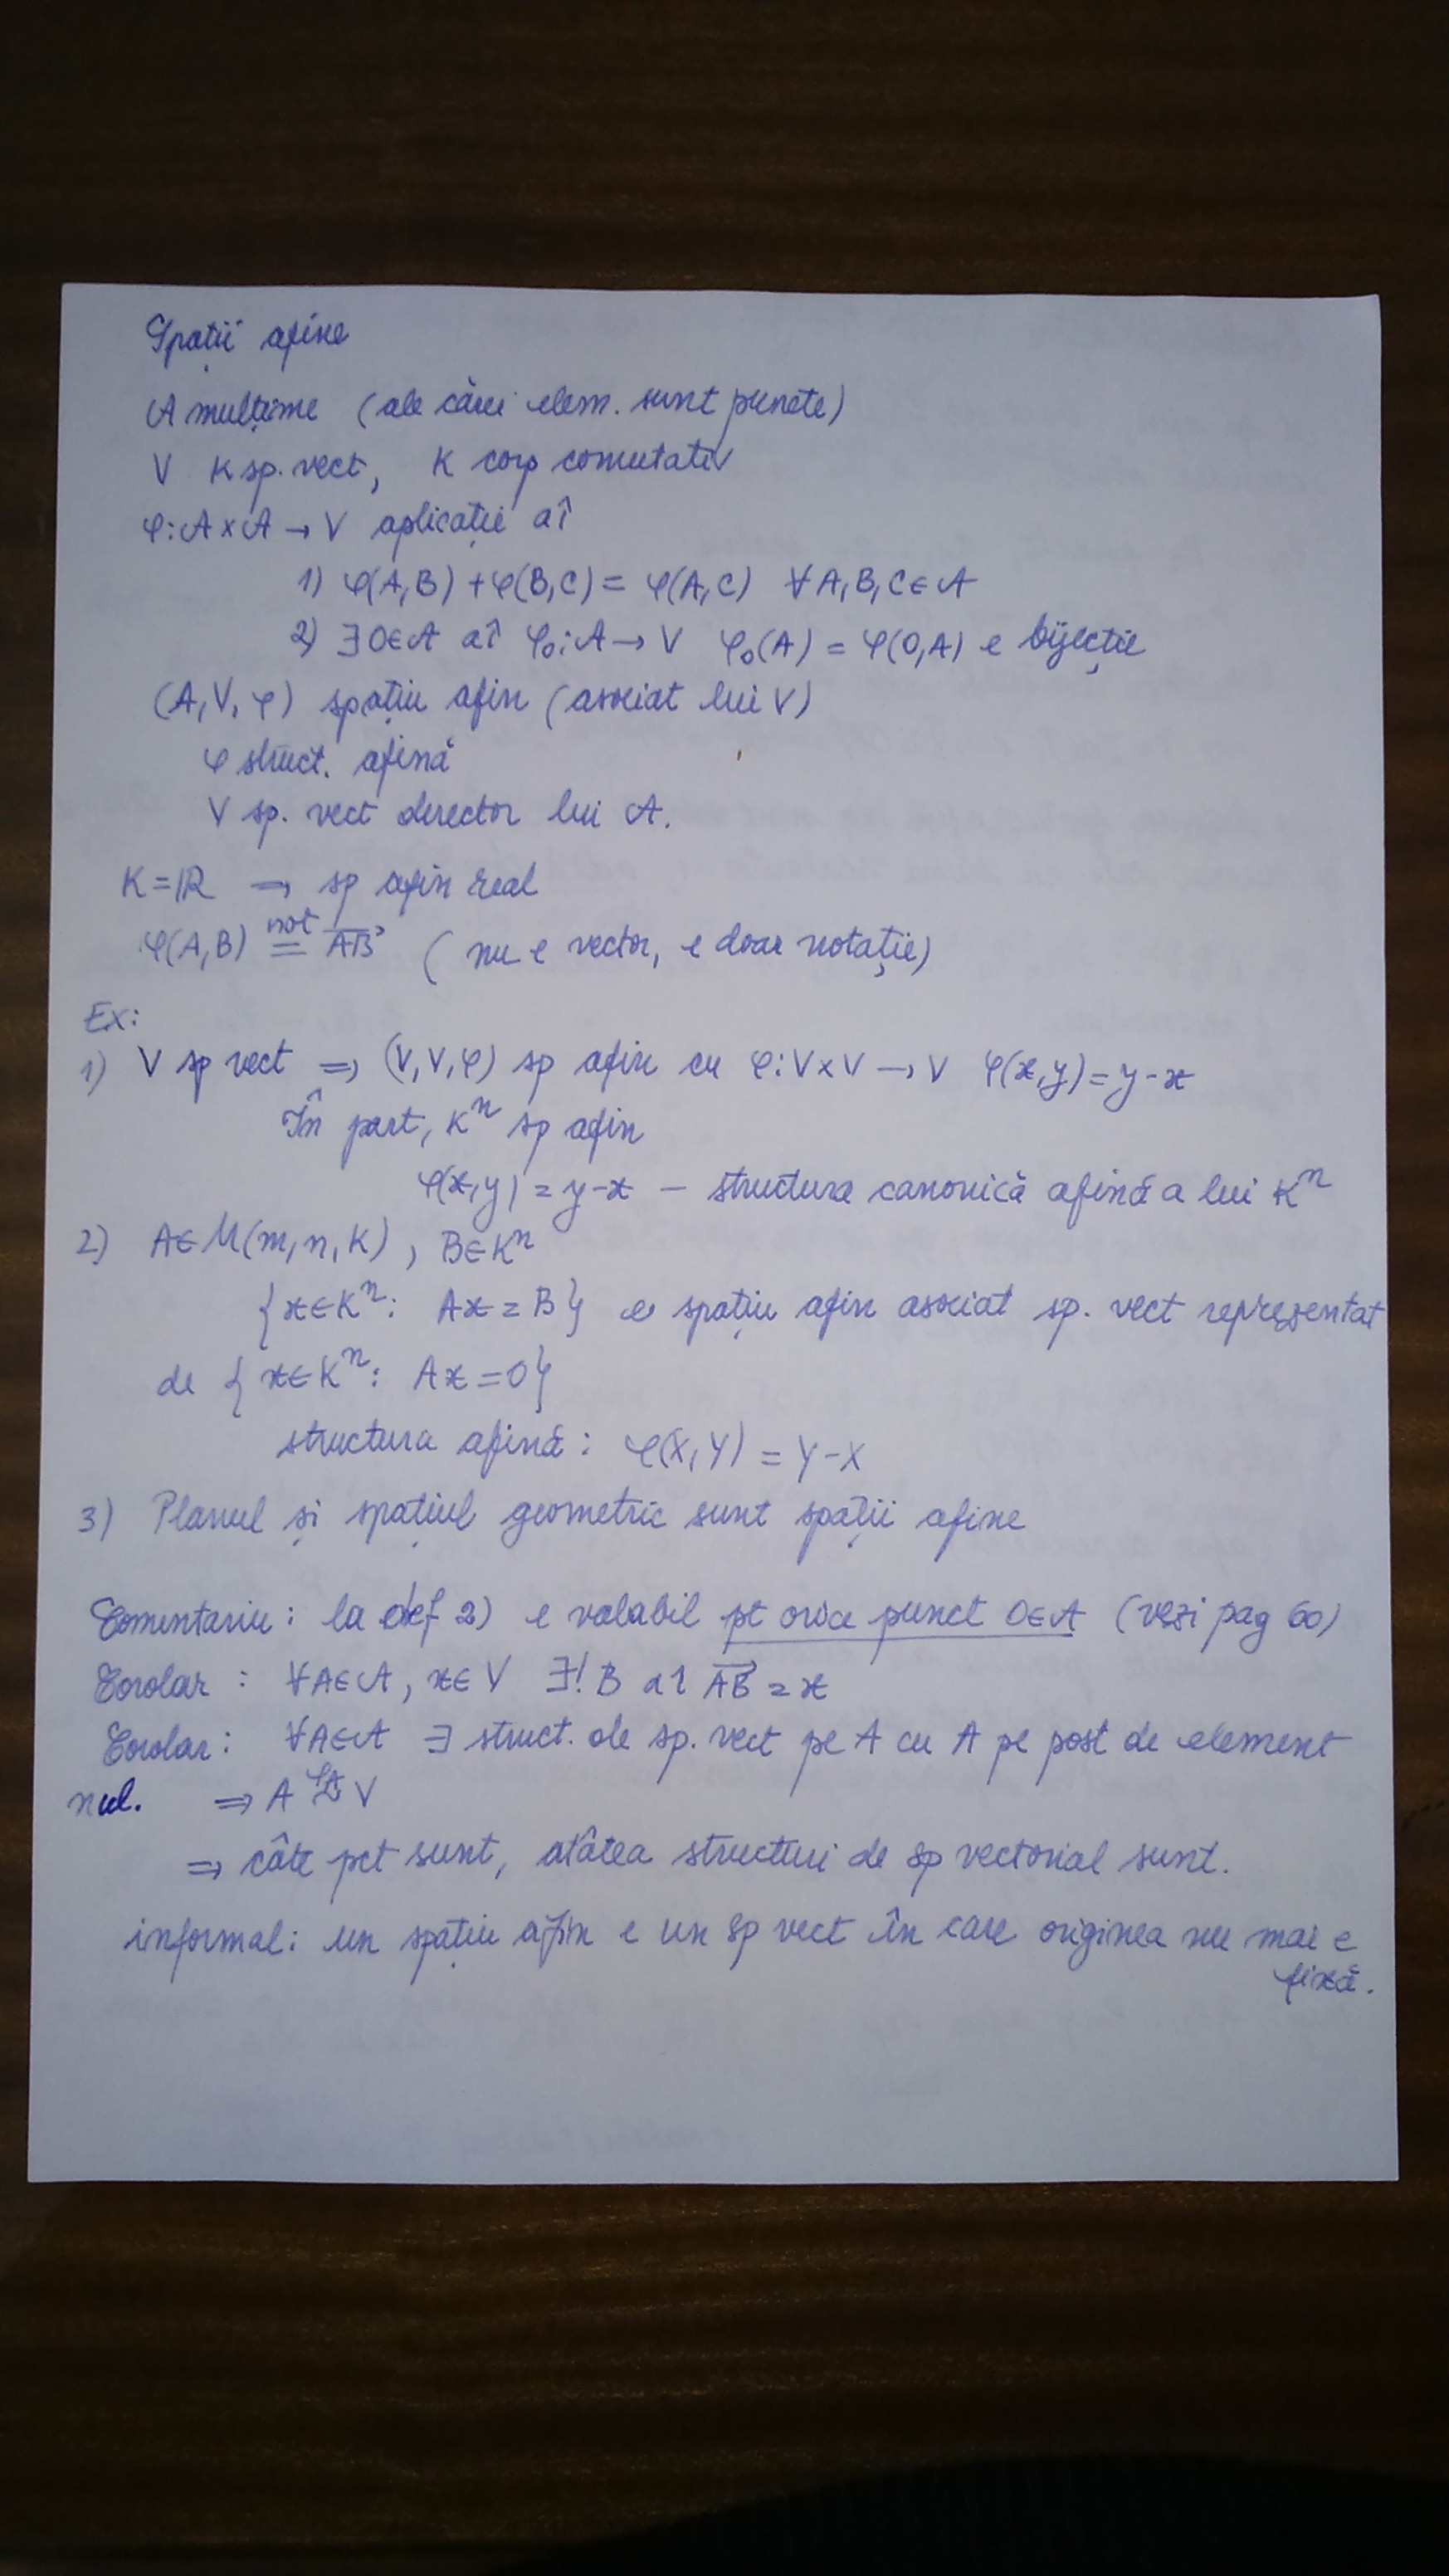 Spații afine
A mulțime (ale cărei elem. sunt puncte)
V K sp. vect, K corp comutativ
φ: A × A → V aplicație aî
1) φ(A,B) + φ(B,C) = φ(A,C) ∀ A,B,C ∈ A
2) ∃ O∈A aî φ₀: A → V φ₀(A) = φ(O,A) e bijecție
(A,V,φ) spațiu afin (asociat lui V)
φ struct. afină
V sp. vect director lui A.
K = ℝ → sp afin real
φ(A,B) not= AB→ (nu e vector, e doar notație)
Ex:
1) V sp vect ⇒ (V,V,φ) sp afin cu φ: V×V → V φ(x,y) = y-x
În part, Kⁿ sp afin
φ(x,y) = y-x – structura canonică afină a lui Kⁿ
2) A∈M(m,n,K), B∈Kⁿ
{x∈Kⁿ: Ax = B} e spațiu afin asociat sp. vect reprezentat
de {x∈Kⁿ: Ax = 0}
structura afină: φ(X,Y) = Y-X
3) Planul și spațiul geometric sunt spații afine
Comentariu: la def 2) e valabil pt orice punct O∈A (vezi pag 60)
Corolar: ∀A∈A, x∈V ∃! B aî AB→ = x
Corolar: ∀A∈A ∃ struct. de sp. vect pe A cu A pe post de element
nul. ⇒ A φA≃ V
⇒ câte pct sunt, atâtea structuri de sp vectorial sunt.
informal: un spațiu afin e un sp vect în care originea nu mai e
fixă.